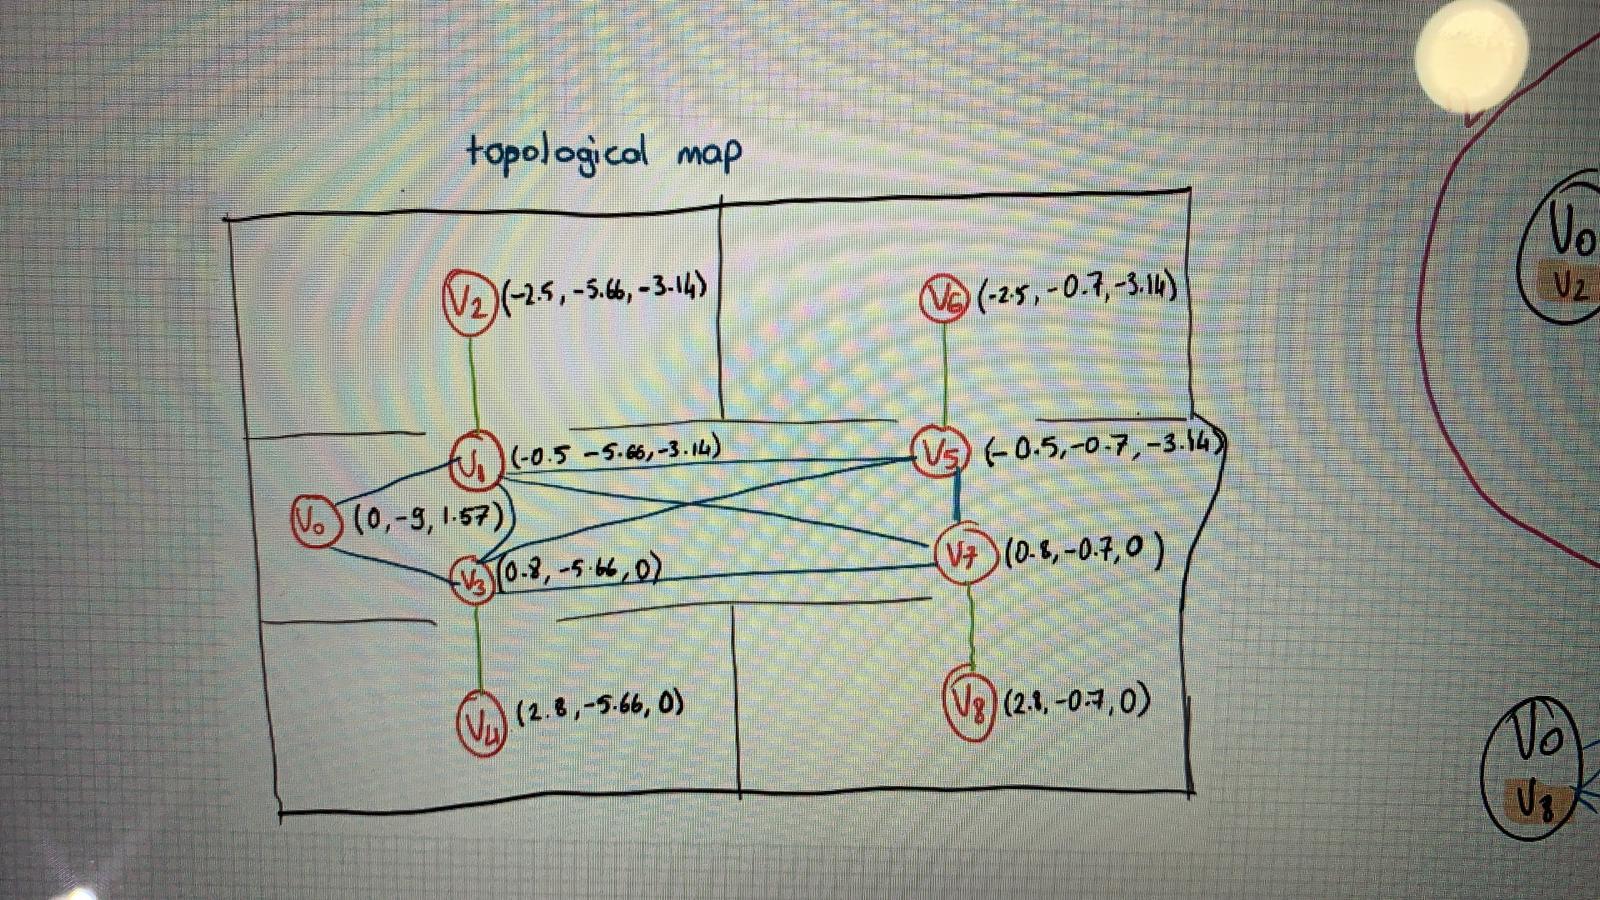 topological map
V2 (-2.5, -5.66, -3.14)
V6 (-2.5, -0.7, -3.14)
V0
V2
V1 (-0.5 -5.66, -3.14)
V5 (-0.5, -0.7, -3.14)
V0 (0, -9, 1.57)
V7 (0.8, -0.7, 0)
V3 (0.8, -5.66, 0)
V4 (2.8, -5.66, 0)
V8 (2.8, -0.7, 0)
V0
V8